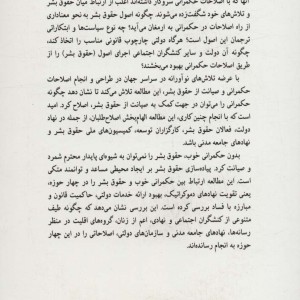 آنها که با اصلاحات حکمرانی سروکار داشته‌اند اغلب از ارتباط میان حقوق بشر
و تلاش‌های خود شگفت‌زده می‌شوند. چگونه اصول حقوق بشر به نحو معناداری
از راه اصلاحات در حکمرانی به ارمغان می‌آید؟ چه نوع سیاست‌ها و ابتکاراتی
ترجمان این اصول است؟ هرگاه دولتی چارچوب قانونی مناسب را اتخاذ کند،
چگونه آن دولت و سایر کنشگران اجتماعی اجرای اصول (حقوق بشر) را از
طریق اصلاحات حکمرانی بهبود می‌بخشند؟
با عرضه تلاش‌های نوآورانه در سراسر جهان در طراحی و انجام اصلاحات
حکمرانی و صیانت از حقوق بشر، این مطالعه تلاش می‌کند تا نشان دهد چگونه
حکمرانی را می‌توان در جهت کمک به صیانت از حقوق بشر، اصلاح کرد. امید
است که این مطالعه الهام‌بخش اصلاح‌طلبان، از جمله در نهاد
دولت، فعالان حقوق بشر، کارگزاران توسعه، کمیسیون‌های ملی حقوق بشر و
نهادهای جامعه مدنی باشد.
بدون حکمرانی خوب، حقوق بشر را نمی‌توان به شیوه‌ای پایدار محترم شمرد
و صیانت کرد. پیاده‌سازی حقوق بشر بر ایجاد محیطی مساعد و توانمند متکی
است. این مطالعه ارتباط بین حکمرانی خوب و حقوق بشر را در چهار حوزه،
یعنی تقویت نهادهای دموکراتیک، بهبود ارائه خدمات دولتی، حاکمیت قانون و
مبارزه با فساد بررسی کرده است. این بررسی نشان می‌دهد که چگونه طیف
متنوعی از کنشگران اجتماعی و نهادی، اعم از زنان، گروه‌های اقلیت در منظر
رسانه‌ها، نهادهای جامعه مدنی و سازمان‌های دولتی، اصلاحاتی را در این چهار
حوزه به انجام رسانده‌اند.